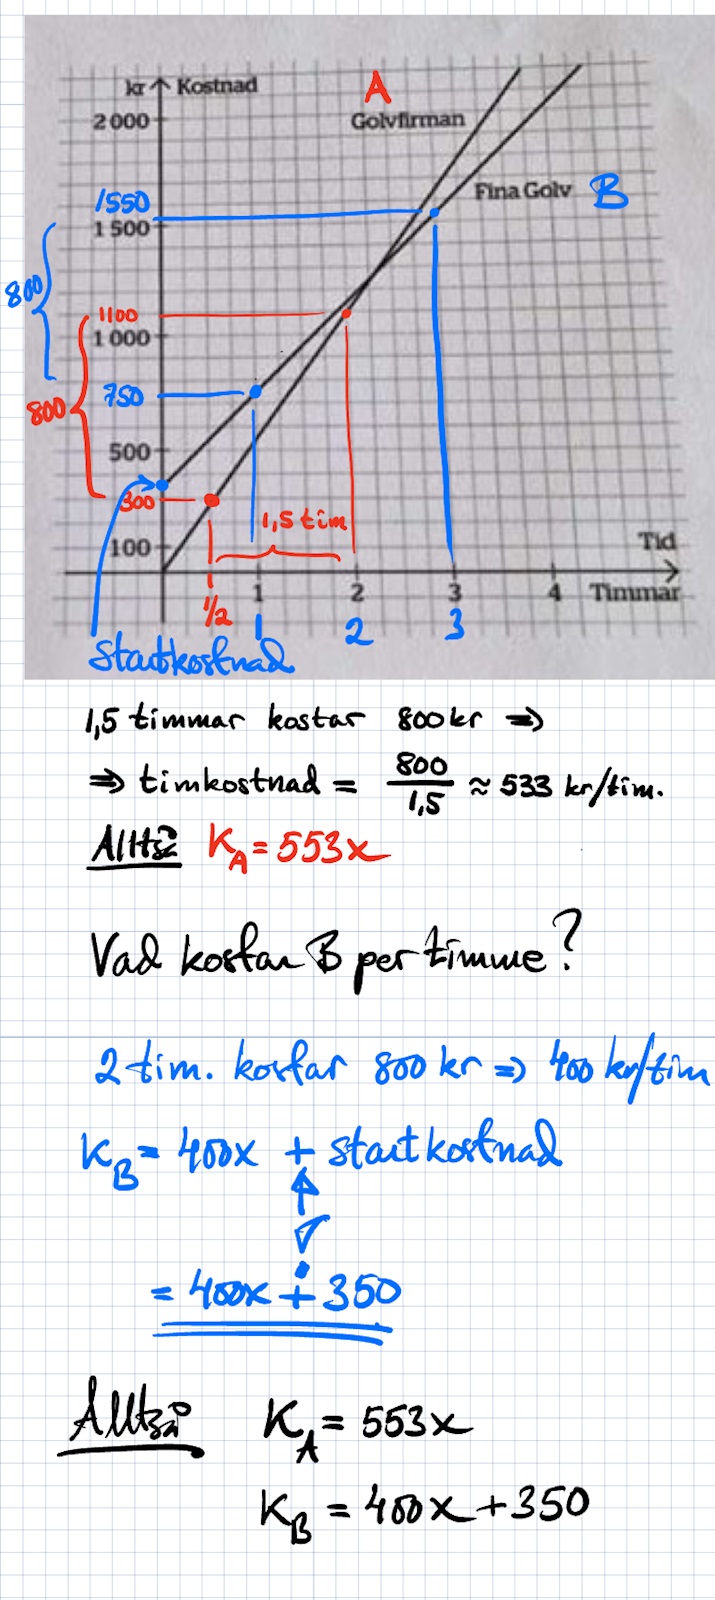 kr Kostnad
A
2 000
Golvfirman
1550
Fina Golv B
1 500
800
1100
1 000
750
800
500
300
1,5 tim
100
Tid
1 2 3 4 Timmar
1/2 1 2 3
Startkostnad
1,5 timmar kostar 800 kr ⇒
⇒ timkostnad = 800/1,5 ≈ 533 kr/tim.
Alltså K_A = 553x
Vad kostar B per timme?
2 tim. kostar 800 kr ⇒ 400 kr/tim
K_B = 400x + startkostnad
= 400x + 350
Alltså K_A = 553x
K_B = 400x + 350